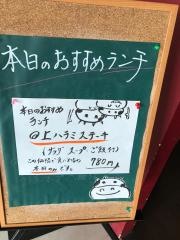 本日のおすすめランチ
本日のおすすめ
ランチ
@上ハラミステーキ
(サラダ スープ ご飯付)
780円
本日のみです。